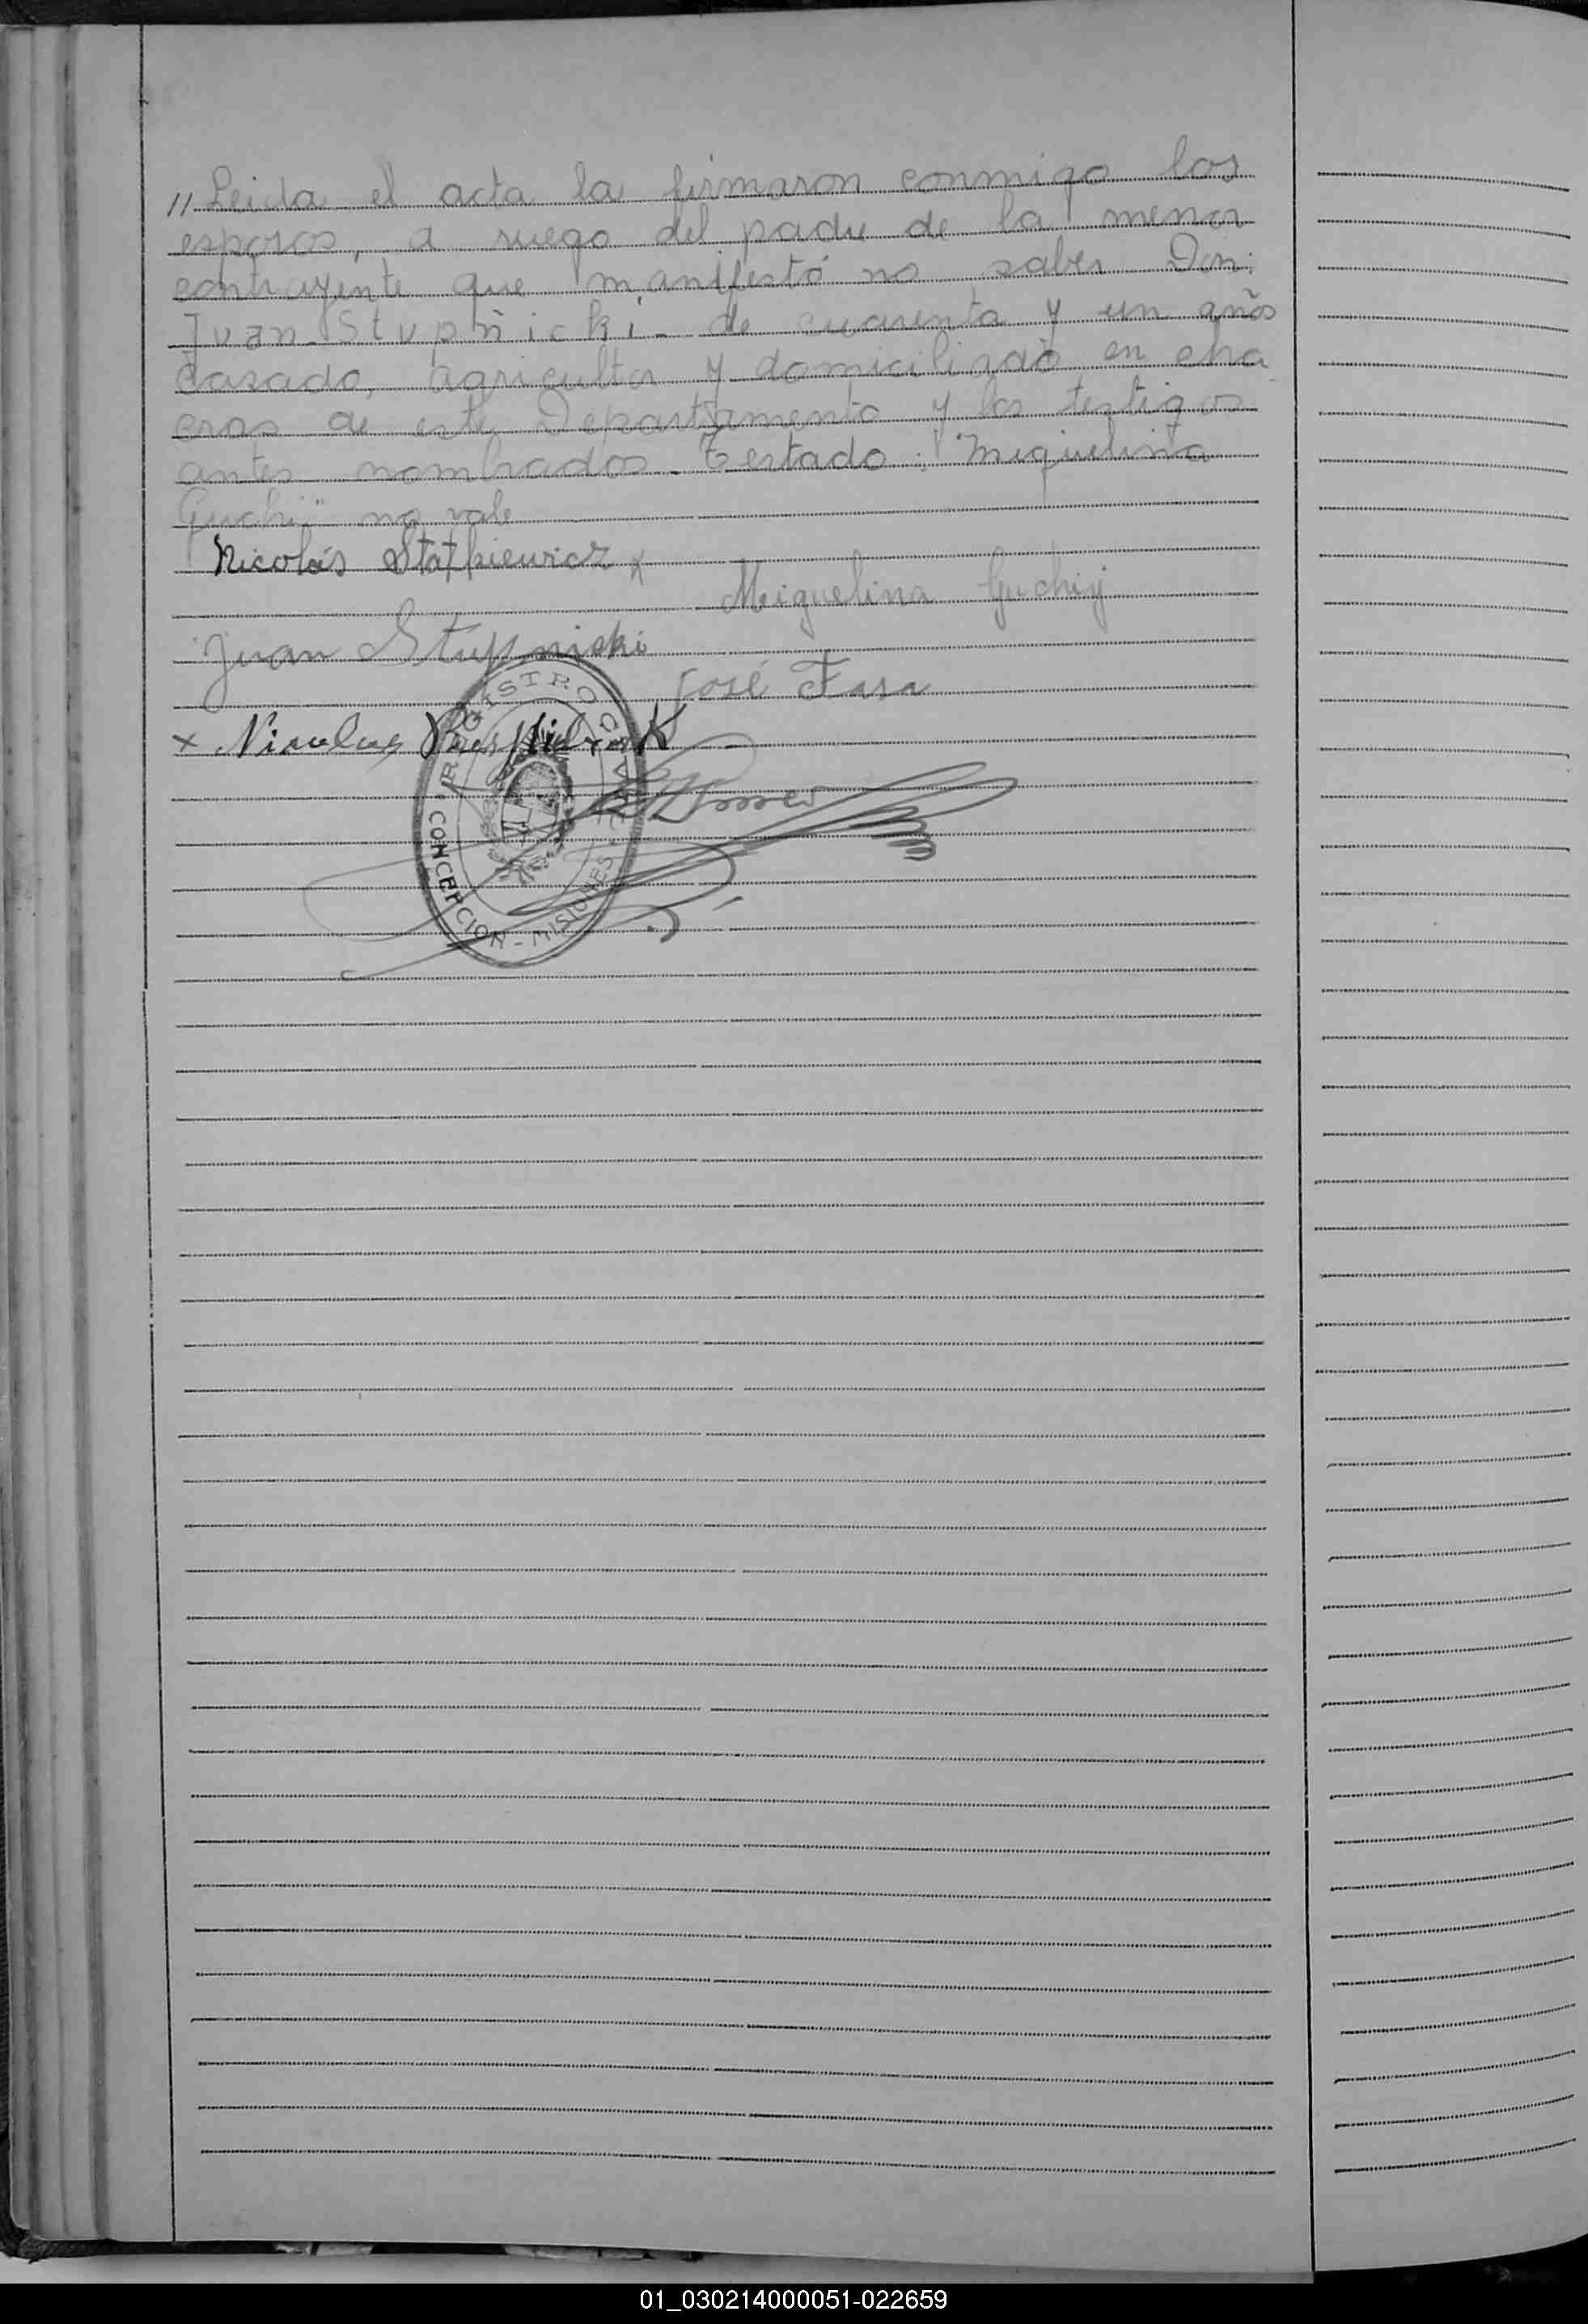 // Leida el acta la firmaron conmigo los
esposos, a ruego del padre de la menor
contrayente que manifestó no saber Don:
Juan Stupñicki - de cuarenta y un años
casado, agricultor y domiciliado en cha
cras de este Departamento y los testigos
antes nombrados. Testado: "Miquelina
Guchij" no vale
Nicolás Statkiewicz x
Miguelina Guchij
Juan Stupniski
José Fasa
x Nicolas
REGISTRO CIVIL
CONCEPCION - MISIONES
01_030214000051-022659